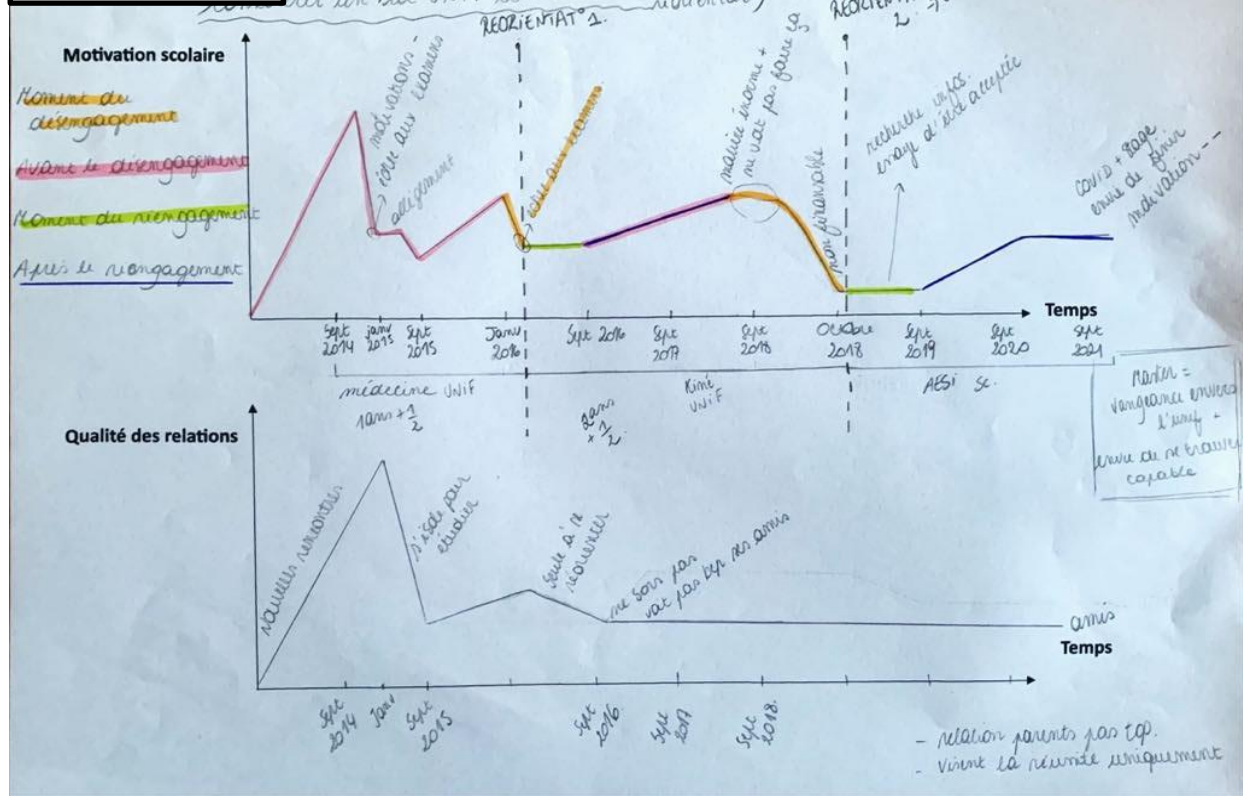 REORIENTAT° 1.
2.
Motivation scolaire
Moment du
désengagement
Avant le désengagement
Moment du réengagement
Après le réengagement
motivations -
échec aux examens
allègement
échec aux examens
matière énorme +
ne voit pas faire ça
non finançable
recherche infos.
d'être acceptée
COVID + stage
envie de finir
motivation - -
Temps
Sept 2014
janv 2015
Sept 2015
Janv 2016
Sept 2016
Sept 2017
Sept 2018
Octobre 2018
Sept 2019
Sept 2020
Sept 2021
médecine UNIF
1ans + 1/2
Kiné
UNIF
2ans + 1/2
AESI Sc.
Master =
vangeance envers
l'unif -
envie de se trouver
capable
Qualité des relations
Nouvelles rencontres
s'isole pour
étudier
seule à se
réorienter
ne sors pas
voit pas bcp ses amis
amis
Temps
Sept 2014
Janv
Sept 2015
Sept 2016
Sept 2017
Sept 2018.
- relation parents pas top.
- visent la réussite uniquement